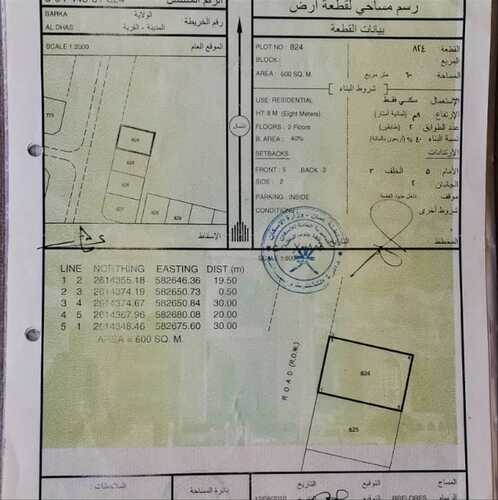 رسم مساحي لقطعة أرض
بيانات القطعة
الولاية
BARKA
رقم الخريطة
المدينة - القرية
AL DHAS
SCALE 1:2000
الموقع العام
PLOT NO: 824
القطعة ٨٢٤
BLOCK :
المربع
AREA : 600 SQ. M.
المساحة ٦٠٠ متر مربع
شروط البناء
USE: RESIDENTIAL
الإستعمال سكني فقط
HT 8 M. (Eight Meters)
FLOORS : 2 Floors
عدد الطوابق ٢
B. AREA : 40%
نسبة البناء ٤٠٪
SETBACKS
الإرتدادات
FRONT : 5 BACK : 3
الأمام ٥ الخلف ٣
SIDE : 2
الجانبان ٢
PARKING : INSIDE
موقف داخل حدود القطعة
CONDITIONS
شروط أخرى
المخطط
شمال
824
الإسقاط
LINE NORTHING EASTING DIST (m)
1 2 2614355.18 582646.36 19.50
2 3 2614374.19 582650.73 0.50
3 4 2614374.67 582650.84 30.00
4 5 2614367.96 582680.08 20.00
5 1 2614348.46 582675.60 30.00
AREA = 600 SQ. M.
ROAD (R.O.W.)
824
825
الملاحظات :
دائرة المساحة
التاريخ
التوقيع
المساح
BFLORES